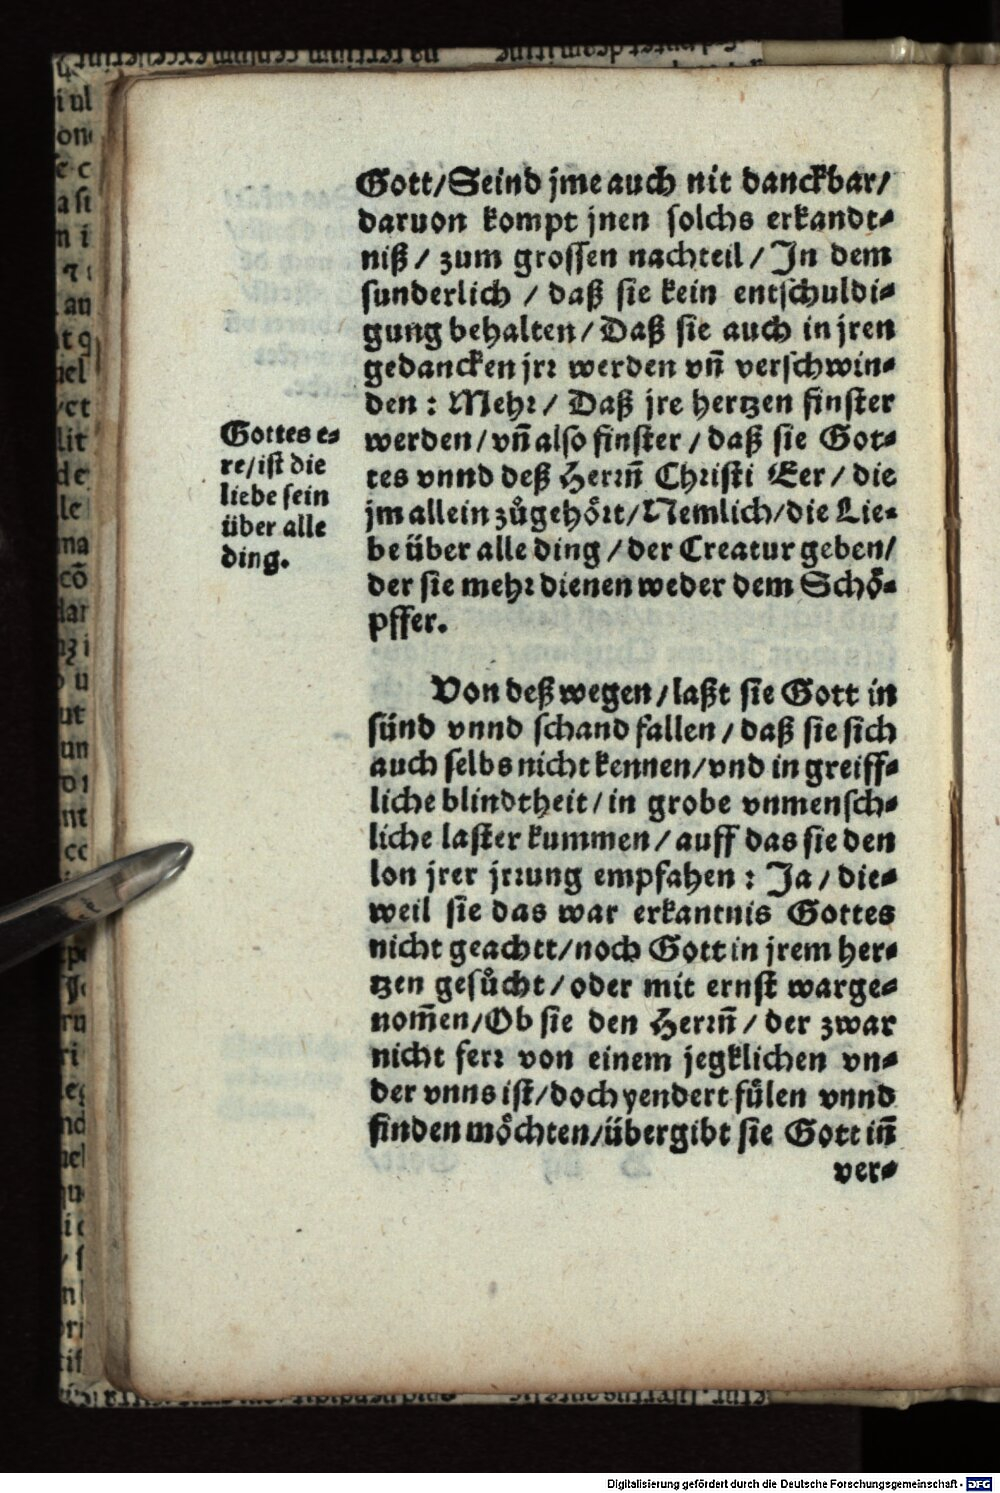 Gott/Seind jme auch nit danckbar/
daruon kompt jnen solchs erkandt⸗
niß / zum grossen nachteil / In dem
sunderlich / daß sie kein entschuldi⸗
gung behalten / Daß sie auch in jren
gedancken jrr werden vn̄ verschwin⸗
den : Mehr / Daß jre hertzen finster
werden / vn̄ also finster / daß sie Got⸗
tes vnnd deß Herrn̄ Christi Eer / die
jm allein zůgehoͤrt / Nemlich / die Lie⸗
be über alle ding / der Creatur geben /
der sie mehr dienen weder dem Schoͤ⸗
pffer.
Gottes e⸗
re / ist die
liebe sein
über alle
ding.
Von deß wegen / laßt sie Gott in
sünd vnnd schand fallen / daß sie sich
auch selbs nicht kennen / vnd in greiff⸗
liche blindtheit / in grobe vnmensch⸗
liche laster kummen / auff das sie den
lon jrer jrrung empfahen : Ja / die⸗
weil sie das war erkantnis Gottes
nicht geachtt / noch Gott in jrem her⸗
tzen gesůcht / oder mit ernst warge⸗
nom̄en / Ob sie den Herrn̄ / der zwar
nicht ferr von einem jegklichen vn⸗
der vnns ist / doch yendert fuͤlen vnnd
finden moͤchten / übergibt sie Gott in̄
ver⸗
Digitalisierung gefördert durch die Deutsche Forschungsgemeinschaft - DFG